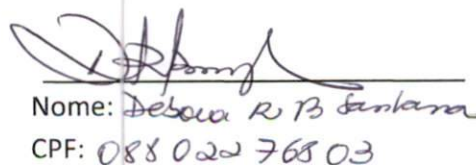 Nome: Debora R B Santana
CPF: 088 022 768 03